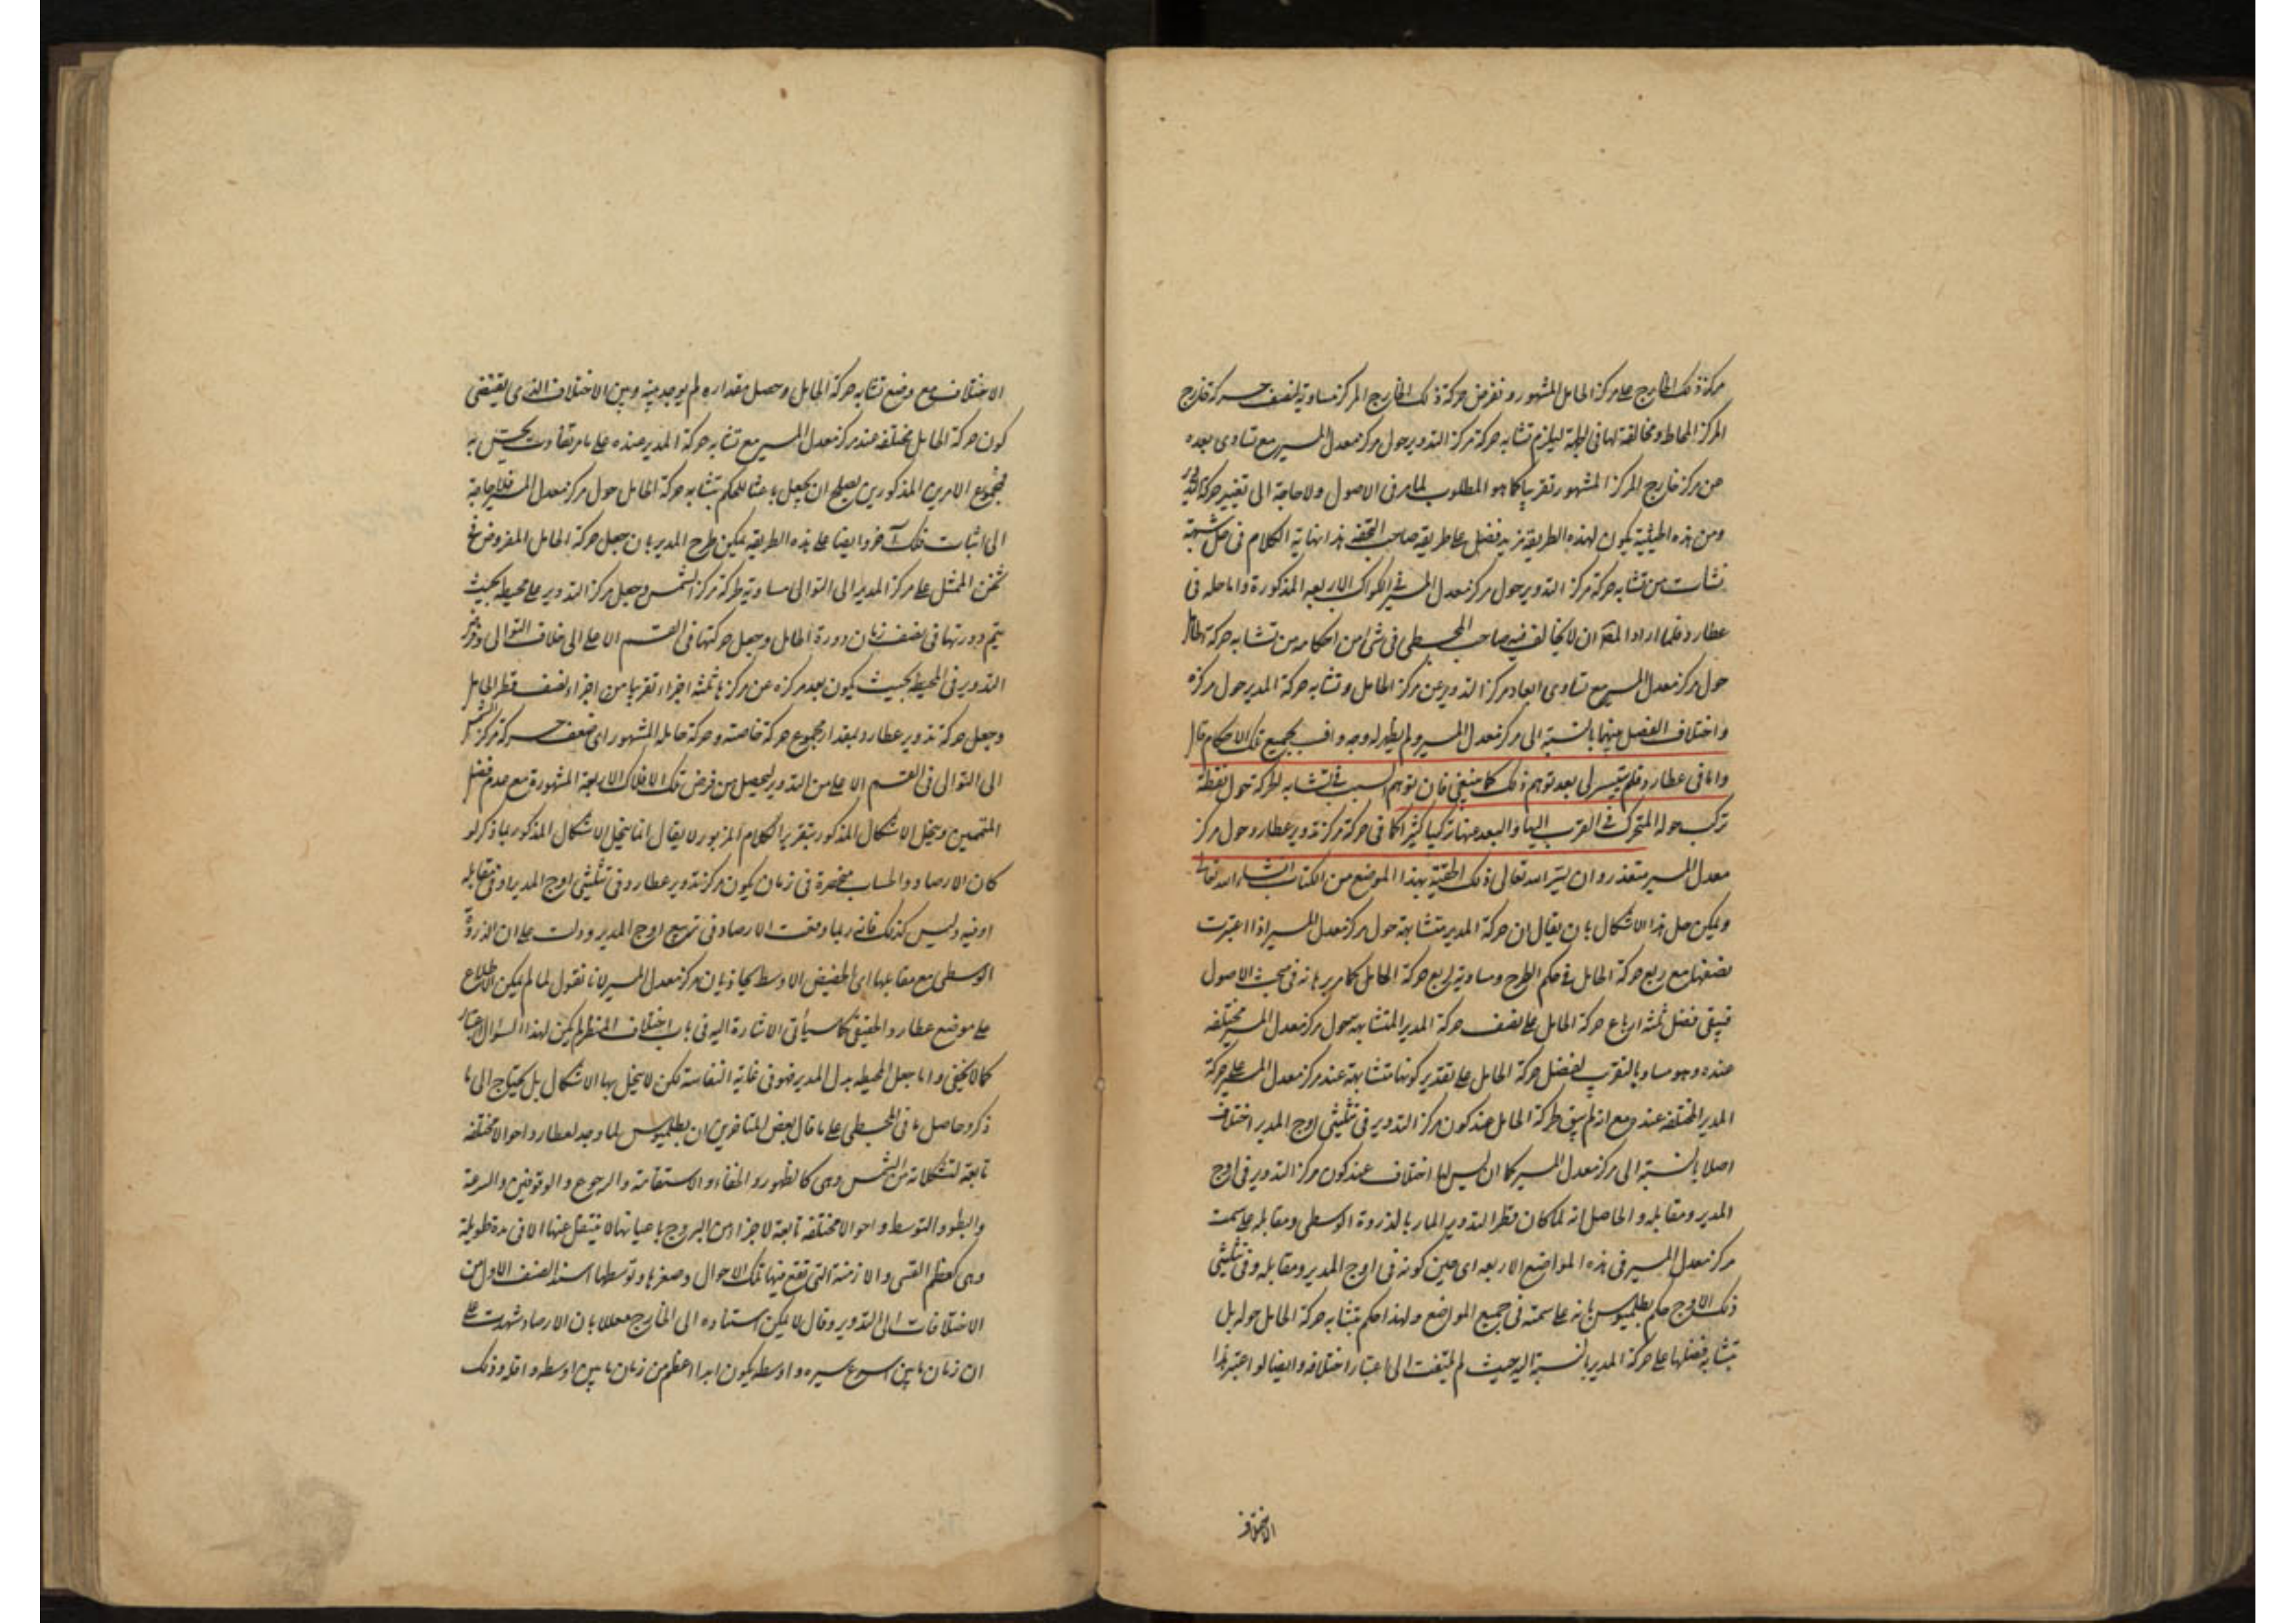 مركز ذلك الخارج على مركز الحامل المشهور ونفرض حركة ذلك الخارج المركز مساوية لنصف حركة خارج
المركز المحاط ومخالفة لها في الجهة ليلزم تشابه حركة مركز التدوير حول مركز معدل المسير مع تساوى بعده
من مركز خارج المركز المشهور تقريبا كما هو المطلوب لما مر في الاصول ولا حاجة الى تغيير حركة
ومن هذه الحيثية يكون لهذه الطريقة مزيد فضل على طريقة صاحب التحفة هذا نهاية الكلام في حل شبهة
نشأت من تشابه حركة مركز التدوير حول مركز معدل المسير في الكواكب الاربعه المذكورة واما حله في
عطارد فلما اراد المص ان لا يخالف فيه صاحب المجسطى في شئ من احكامه من تشابه حركة الحامل
حول مركز معدل المسير مع تساوى ابعاد مركز التدوير عن مركز الحامل وتشابه حركة المدير حول مركزه
واختلاف الفضل بينهما بالنسبة الى مركز معدل المسير ولم يظهر له وجه واف بجميع تلك الاحكام قال
واما في عطارد فلم يتيسر لى بعد توهم ذلك كما ينبغى فان توهم السبب في تشابه الحركة حول نقطة
تركب حوله المتحرك في القرب اليها والبعد عنها تركيبا كثيرا كما في حركة مركز تدوير عطارد حول مركز
معدل المسير متعذر وان يسر الله تعالى ذلك الحقته بهذا الموضع من الكتاب انشاء الله تعالى
ويمكن حل هذا الاشكال بان يقال ان حركة المدير متشابهة حول مركز معدل المسير اذا اعتبرت
نصفها مع ربع حركة الحامل في حكم الطرح ومساوية لربع حركة الحامل كما مر برهانه في مبحث الاصول
فيبقى فضل ثلثه ارباع حركة الحامل على نصف حركة المدير المتشابهة حول مركز معدل المسير مختلفه
عنده وهو مساو بالتقريب لفضل حركة الحامل على تقدير كونها متشابهة عند مركز معدل المسير على حركة
المدير المختلفه عنده مع انه لم يبق لحركة الحامل عند كون مركز التدوير في تثليثى اوج المدير اختلاف
اصلا بالنسبة الى مركز معدل المسير كما ان ليس لها اختلاف عند كون مركز التدوير في اوج
المدير ومقابله والحاصل انه لما كان قطر التدوير المار بالذروة الوسطى ومقابله على سمت
مركز معدل المسير في هذه المواضع الاربعه اى حين كونه في اوج المدير ومقابله وفي تثليثى
ذلك الاوج حكم بطلميوس بانه على سمته في جميع المواضع ولهذا حكم بتشابه حركة الحامل حوله بل
بتشابه فضلها على حركة المدير بالنسبة اليه حيث لم يلتفت الى اعتبار اختلافه وايضا لو اعتبر هذا
الاختلاف
الاختلاف مع وضع تشابه حركة الحامل وحصل مقداره لم يوجد بينه وبين الاختلاف الذى يقتضى
كون حركة الحامل مختلفه عند مركز معدل المسير مع تشابه حركة المدير عنده على ما مر تفاوت يحس به
فمجموع الامرين المذكورين يصلح ان يجعل باعثا للحكم بتشابه حركة الحامل حول مركز معدل المسير فلا حاجة
الى اثبات فلك آخر وايضا على هذه الطريقه يمكن طرح المدير بان نجعل حركة الحامل المفروض في
ثخن الممثل على مركز المدير الى التوالى مساوية لحركة مركز الشمس ونجعل مركز التدوير على محيط بحيث
يتم دورتها في نصف زمان دورة الحامل ونجعل حركتها في القسم الاعلى الى خلاف التوالى ونفرض
التدوير في المحيطه بحيث يكون بعد مركزه عن مركزها ثلثه اجزاء تقريبا من اجزاء نصف قطر الحامل
ونجعل حركة تدوير عطارد بمقدار مجموع حركة خاصته وحركة حامله المشهور اى ضعف حركة مركز الشمس
الى التوالى في القسم الاعلى من التدوير ليحصل من فرض تلك الافلاك الاربعة المشهورة مع عدم فضل
المتممين وينحل الاشكال المذكور بتقرير الكلام المزبور لا يقال انما ينحل الاشكال المذكور بما ذكر لو
كان الارصاد والحساب منحصرة في زمان يكون مركز تدوير عطارد في تثليثى اوج المدير او في مقابله
او فيه وليس كذلك فانه ربما وقعت الارصاد في تربيع اوج المدير ودلت على ان الذروة
الوسطى مع مقابلها اى الحضيض الاوسط يحاذيان مركز معدل المسير لانا نقول لما لم يكن الاطلاع
على موضع عطارد الحقيقى كما سيأتى الاشارة اليه في باب اختلاف المنظر لم يكن لهذا السؤال اعتبار
كما لا يخفى واما جعل المحيطه بدل المدير فهو في غاية النفاسة لكن لا ينحل بها الاشكال بل يحتاج الى ما
ذكر وحاصل ما في المجسطى على ما قال بعض المتاخرين ان بطلميوس لما وجد لعطارد احوالا مختلفه
تابعة لتشكلاته من الشمس وهى كالظهور والخفاء والاستقامة والرجوع والوقوفين والسرعة
والبطو والتوسط واحوالا مختلفه تابعة لاجزاء من البروج باعيانها لا ينتقل عنها الا في مدة طويلة
وهى كعظم القسى والازمنة التى تقع فيها تلك الاحوال وصغرها وتوسطها اسند الصنف الاول من
الاختلافات الى التدوير وقال لا يمكن استناده الى الخارج معللا بان الارصاد شهدت على
ان زمان ما بين اسرع سيره واوسطه يكون ابدا اعظم من زمان ما بين اوسطه واقله وذلك